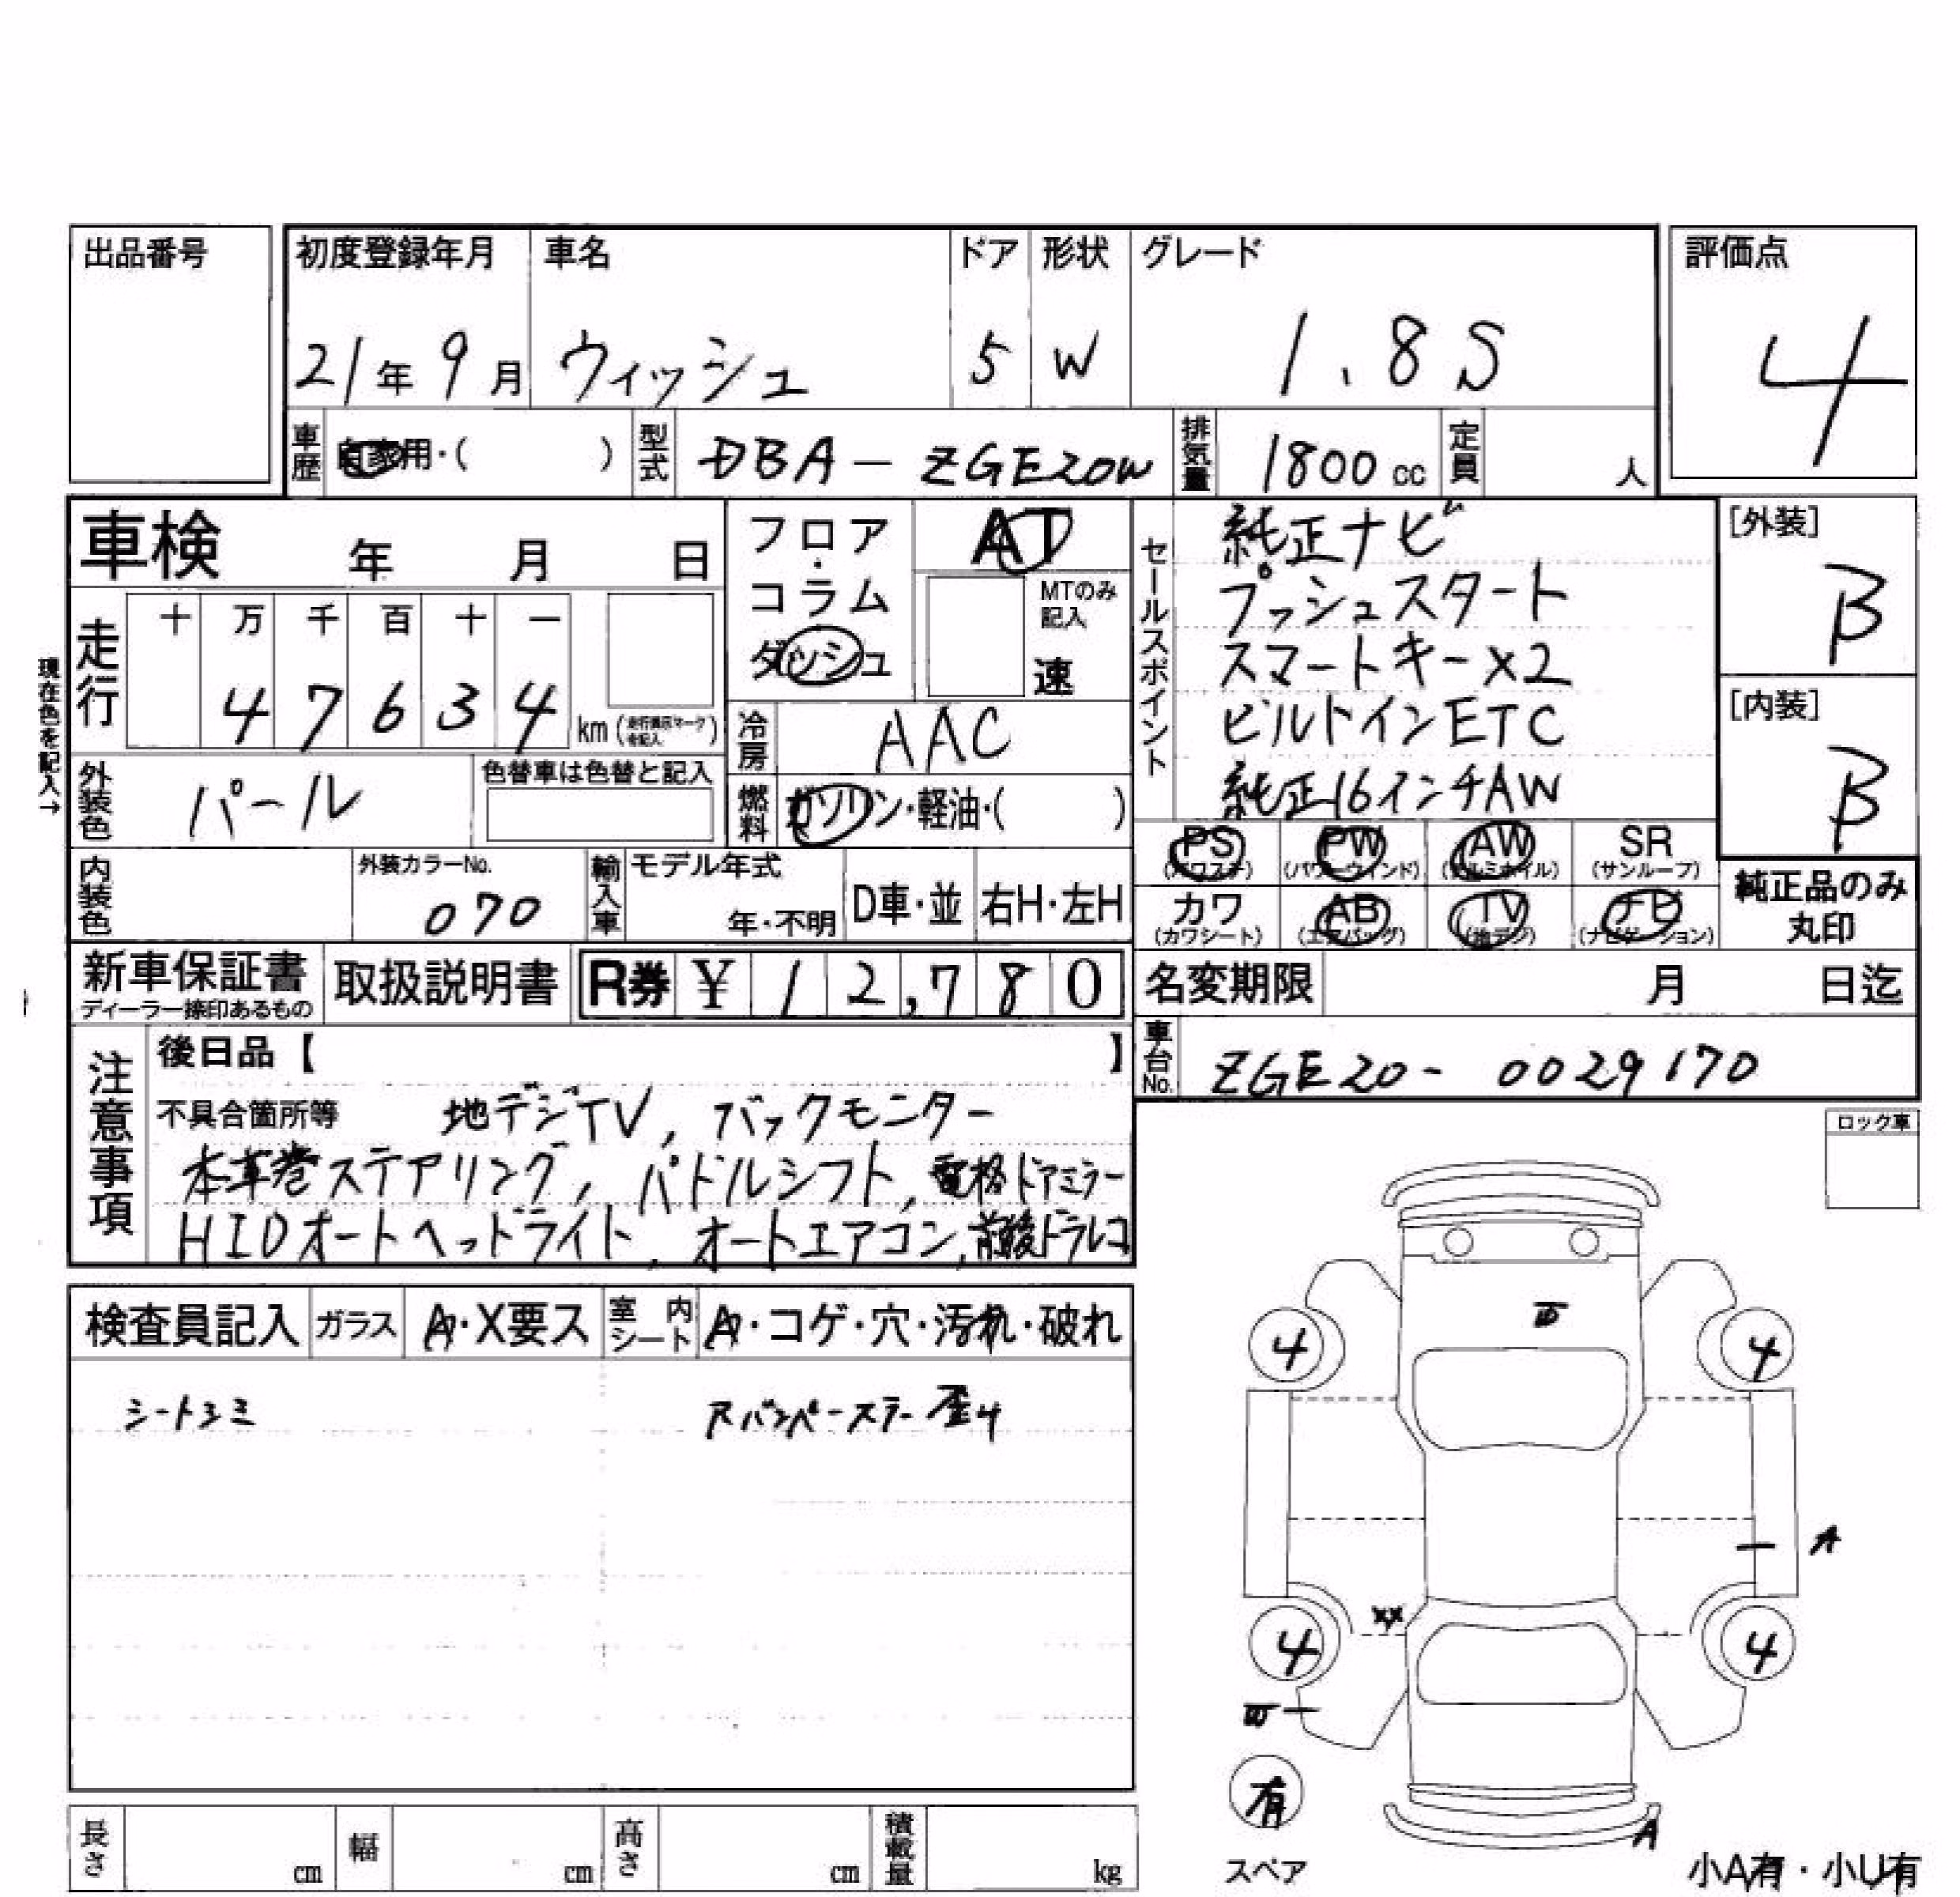 出品番号
初度登録年月 車名 ドア 形状 グレード 評価点
21年 9月 ウィッシュ 5 W 1.8S 4
車歴 自家用・( ) 型式 DBA - ZGE20W 排気量 1800cc 定員 人
車検 年 月 日
フロア・コラム ダッシュ
AT
MTのみ記入
速
走行 十 万 千 百 十 一
4 7 6 3 4 km (走行表示マークを記入)
現在色を記入→
冷房 AAC
外装色 パール 色替車は色替と記入
燃料 ガソリン・軽油・( )
内装色 外装カラーNo. 070
輸入車 モデル年式 年・不明 D車・並 右H・左H
セールスポイント
純正ナビ
プッシュスタート
スマートキー×2
ビルトインETC
純正16インチAW
[外装]
B
[内装]
B
PS (パワステ) PW (パワーウィンド) AW (アルミホイル) SR (サンルーフ)
カワ (カワシート) AB (エアバッグ) TV (地デジ) ナビ (ナビゲーション)
純正品のみ丸印
新車保証書 ディーラー捺印あるもの 取扱説明書 R券 ¥ 12,780
名変期限 月 日迄
車台No. ZGE20- 0029170
注意事項
後日品【 】
不具合箇所等 地デジTV, バックモニター
本革巻ステアリング, パドルシフト, 電格ドアミラー
HIDオートヘッドライト, オートエアコン, 前後ドラレコ
ロック車
検査員記入 ガラス A・X要ス 室内シート A・コゲ・穴・汚れ・破れ
シートシミ
バンパーステー歪
4 4
A
XX
4 4
有
スペア
A
小A有・小U有
長さ cm 幅 cm 高さ cm 積載量 kg